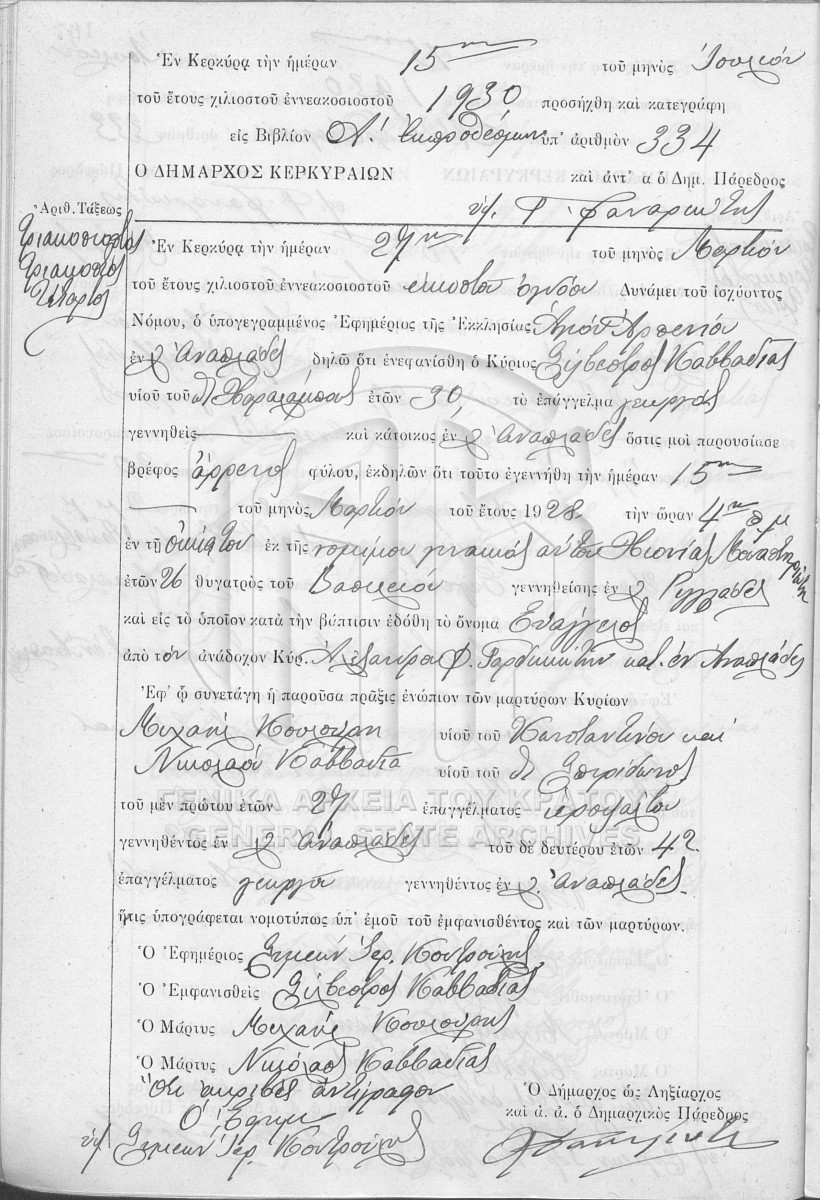 Ἐν Κερκύρᾳ τὴν ἡμέραν 15ην τοῦ μηνὸς Ἰουλίου
τοῦ ἔτους χιλιοστοῦ ἐννεακοσιοστοῦ 1930 προσήχθη καὶ κατεγράφη
εἰς Βιβλίον Α. Ἐκπροθέσμων ὑπ' ἀριθμὸν 334
Ὁ ΔΗΜΑΡΧΟΣ ΚΕΡΚΥΡΑΙΩΝ καὶ ἀντ' α ὁ Δημ. Πάρεδρος
Ἀριθ. Τάξεως
Τριακοσιοστὸς
Τριακοστὸς
Τέταρτος
Ἐν Κερκύρᾳ τὴν ἡμέραν 27ην τοῦ μηνὸς Μαρτίου
τοῦ ἔτους χιλιοστοῦ ἐννεακοσιοστοῦ εἰκοστοῦ ὀγδόου Δυνάμει τοῦ ἰσχύοντος
Νόμου, ὁ ὑπογεγραμμένος Ἐφημέριος τῆς Ἐκκλησίας Ἁγίου Ἀρσενίου
ἐν Ἀναπλάδες δηλῶ ὅτι ἐνεφανίσθη ὁ Κύριος Σίλβεστρος Καββαδίας
υἱοῦ τοῦ Χαραλάμπους ἐτῶν 30, τὸ ἐπάγγελμα γεωργὸς
γεννηθεὶς καὶ κάτοικος ἐν Ἀναπλάδες ὅστις μοὶ παρουσίασε
βρέφος ἄρρενος φύλου, ἐκδηλῶν ὅτι τοῦτο ἐγεννήθη τὴν ἡμέραν 15ην
τοῦ μηνὸς Μαρτίου τοῦ ἔτους 1928. τὴν ὥραν 4ην π μ
ἐν τῇ οἰκίᾳ του ἐκ τῆς νομίμου γυναικός αὐτοῦ Χιονίας
ἐτῶν 26 θυγατρὸς τοῦ Βασιλείου γεννηθείσης ἐν Ριγγλάδες
καὶ εἰς τὸ ὁποῖον κατὰ τὴν βάπτισιν ἐδόθη τὸ ὄνομα Εὐάγγελος
ἀπὸ τὸν ἀνάδοχον Κύρ. Ἀλέξανδρο Φ. κατ. ἐν Ἀναπλάδες
Ἐφ' ᾧ συνετάγη ἡ παροῦσα πρᾶξις ἐνώπιον τῶν μαρτύρων Κυρίων
Μιχαὴλ Κουλούρη υἱοῦ τοῦ Κωνσταντίνου καὶ
Νικολάου Καββαδία υἱοῦ τοῦ Σπυρίδωνος
τοῦ μὲν πρώτου ἐτῶν 27 ἐπαγγέλματος ἱεροψάλτου
ΓΕΝΙΚΑ ΑΡΧΕΙΑ ΤΟΥ ΚΡΑΤΟΥΣ
GENERAL STATE ARCHIVES
γεννηθέντος ἐν Ἀναπλάδες τοῦ δὲ δευτέρου ἐτῶν 42
ἐπαγγέλματος γεωργοῦ γεννηθέντος ἐν Ἀναπλάδες.
ἥτις ὑπογράφεται νομοτύπως ὑπ' ἐμοῦ τοῦ ἐμφανισθέντος καὶ τῶν μαρτύρων.
Ὁ Ἐφημέριος Συμεών Ἱερ. Κοντρούλης
Ὁ Ἐμφανισθεὶς Σίλβεστρος Καββαδίας
Ὁ Μάρτυς Μιχαὴλ Κουλούρης
Ὁ Μάρτυς Νικόλαος Καββαδίας
Ὅτι ἀκριβὲς ἀντίγραφον
Ὁ Δήμαρχος ὡς Ληξίαρχος
καὶ ἀ. ἀ. ὁ Δημαρχικὸς Πάρεδρος
Ὁ Ἐφημ
Συμεών Ἱερ. Κοντρούλης